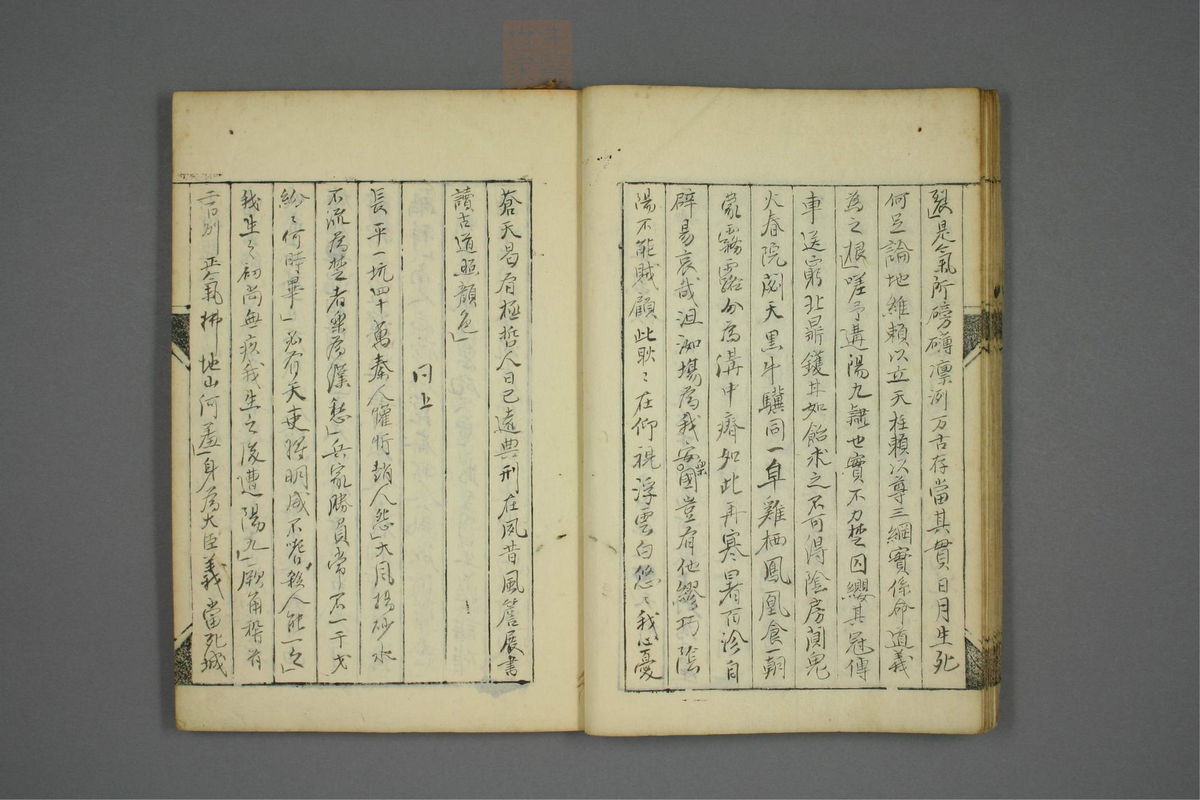 裂是氣所磅礴凛冽万古存當其貫日月生死
何足論地維賴以立天柱賴以尊三綱實係命道義
為之根嗟予遘陽九隷也實不力楚囚纓其冠傳
車送窮北鼎鑊甘如飴求之不可得陰房闃鬼
火春院閟天黑牛驥同一皁雞栖鳳凰食一朝
蒙霧露分為溝中瘠如此再寒暑百沴自
辟易哀哉沮洳場為我安樂國豈有他繆巧陰
陽不能賊顧此耿〻在仰視浮雲白悠〻我心憂
蒼天曷有極哲人日已遠典刑在夙昔風簷展書
讀古道照顔色」
同上
長平一坑四十萬秦人懽忻趙人怨」大風揚砂水
不流為楚者樂為漢愁」兵家勝負常不一干戈
紛〻何時畢」必有天吏將明威不嗜殺人能一之」
我生之初尚無疚我生之後遭陽九」厥角稽首
二百州正氣掃地山河羞」身為大臣義當死城